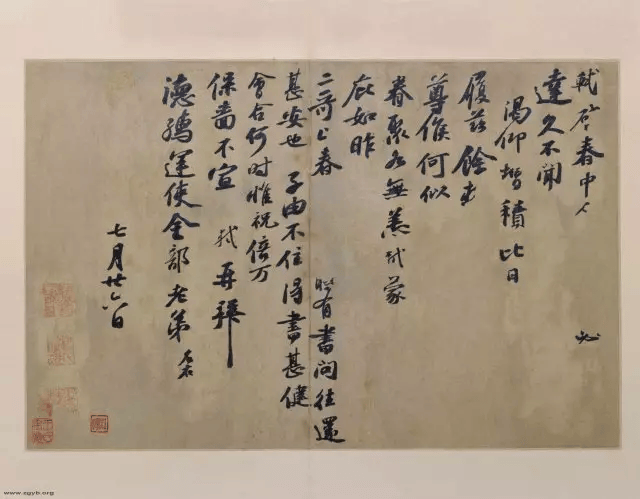 軾啓春中 必
達久不聞
渴仰增積比日
履兹餘
尊候何似
眷聚各無恙軾蒙
庇如昨
二哥上春 時有書問往還
甚安也 子由不住得書甚健
會合何時惟祝倍万
保嗇不宣 軾再拜
德孺運使金部老弟
七月廿六日
www.zgyb.org